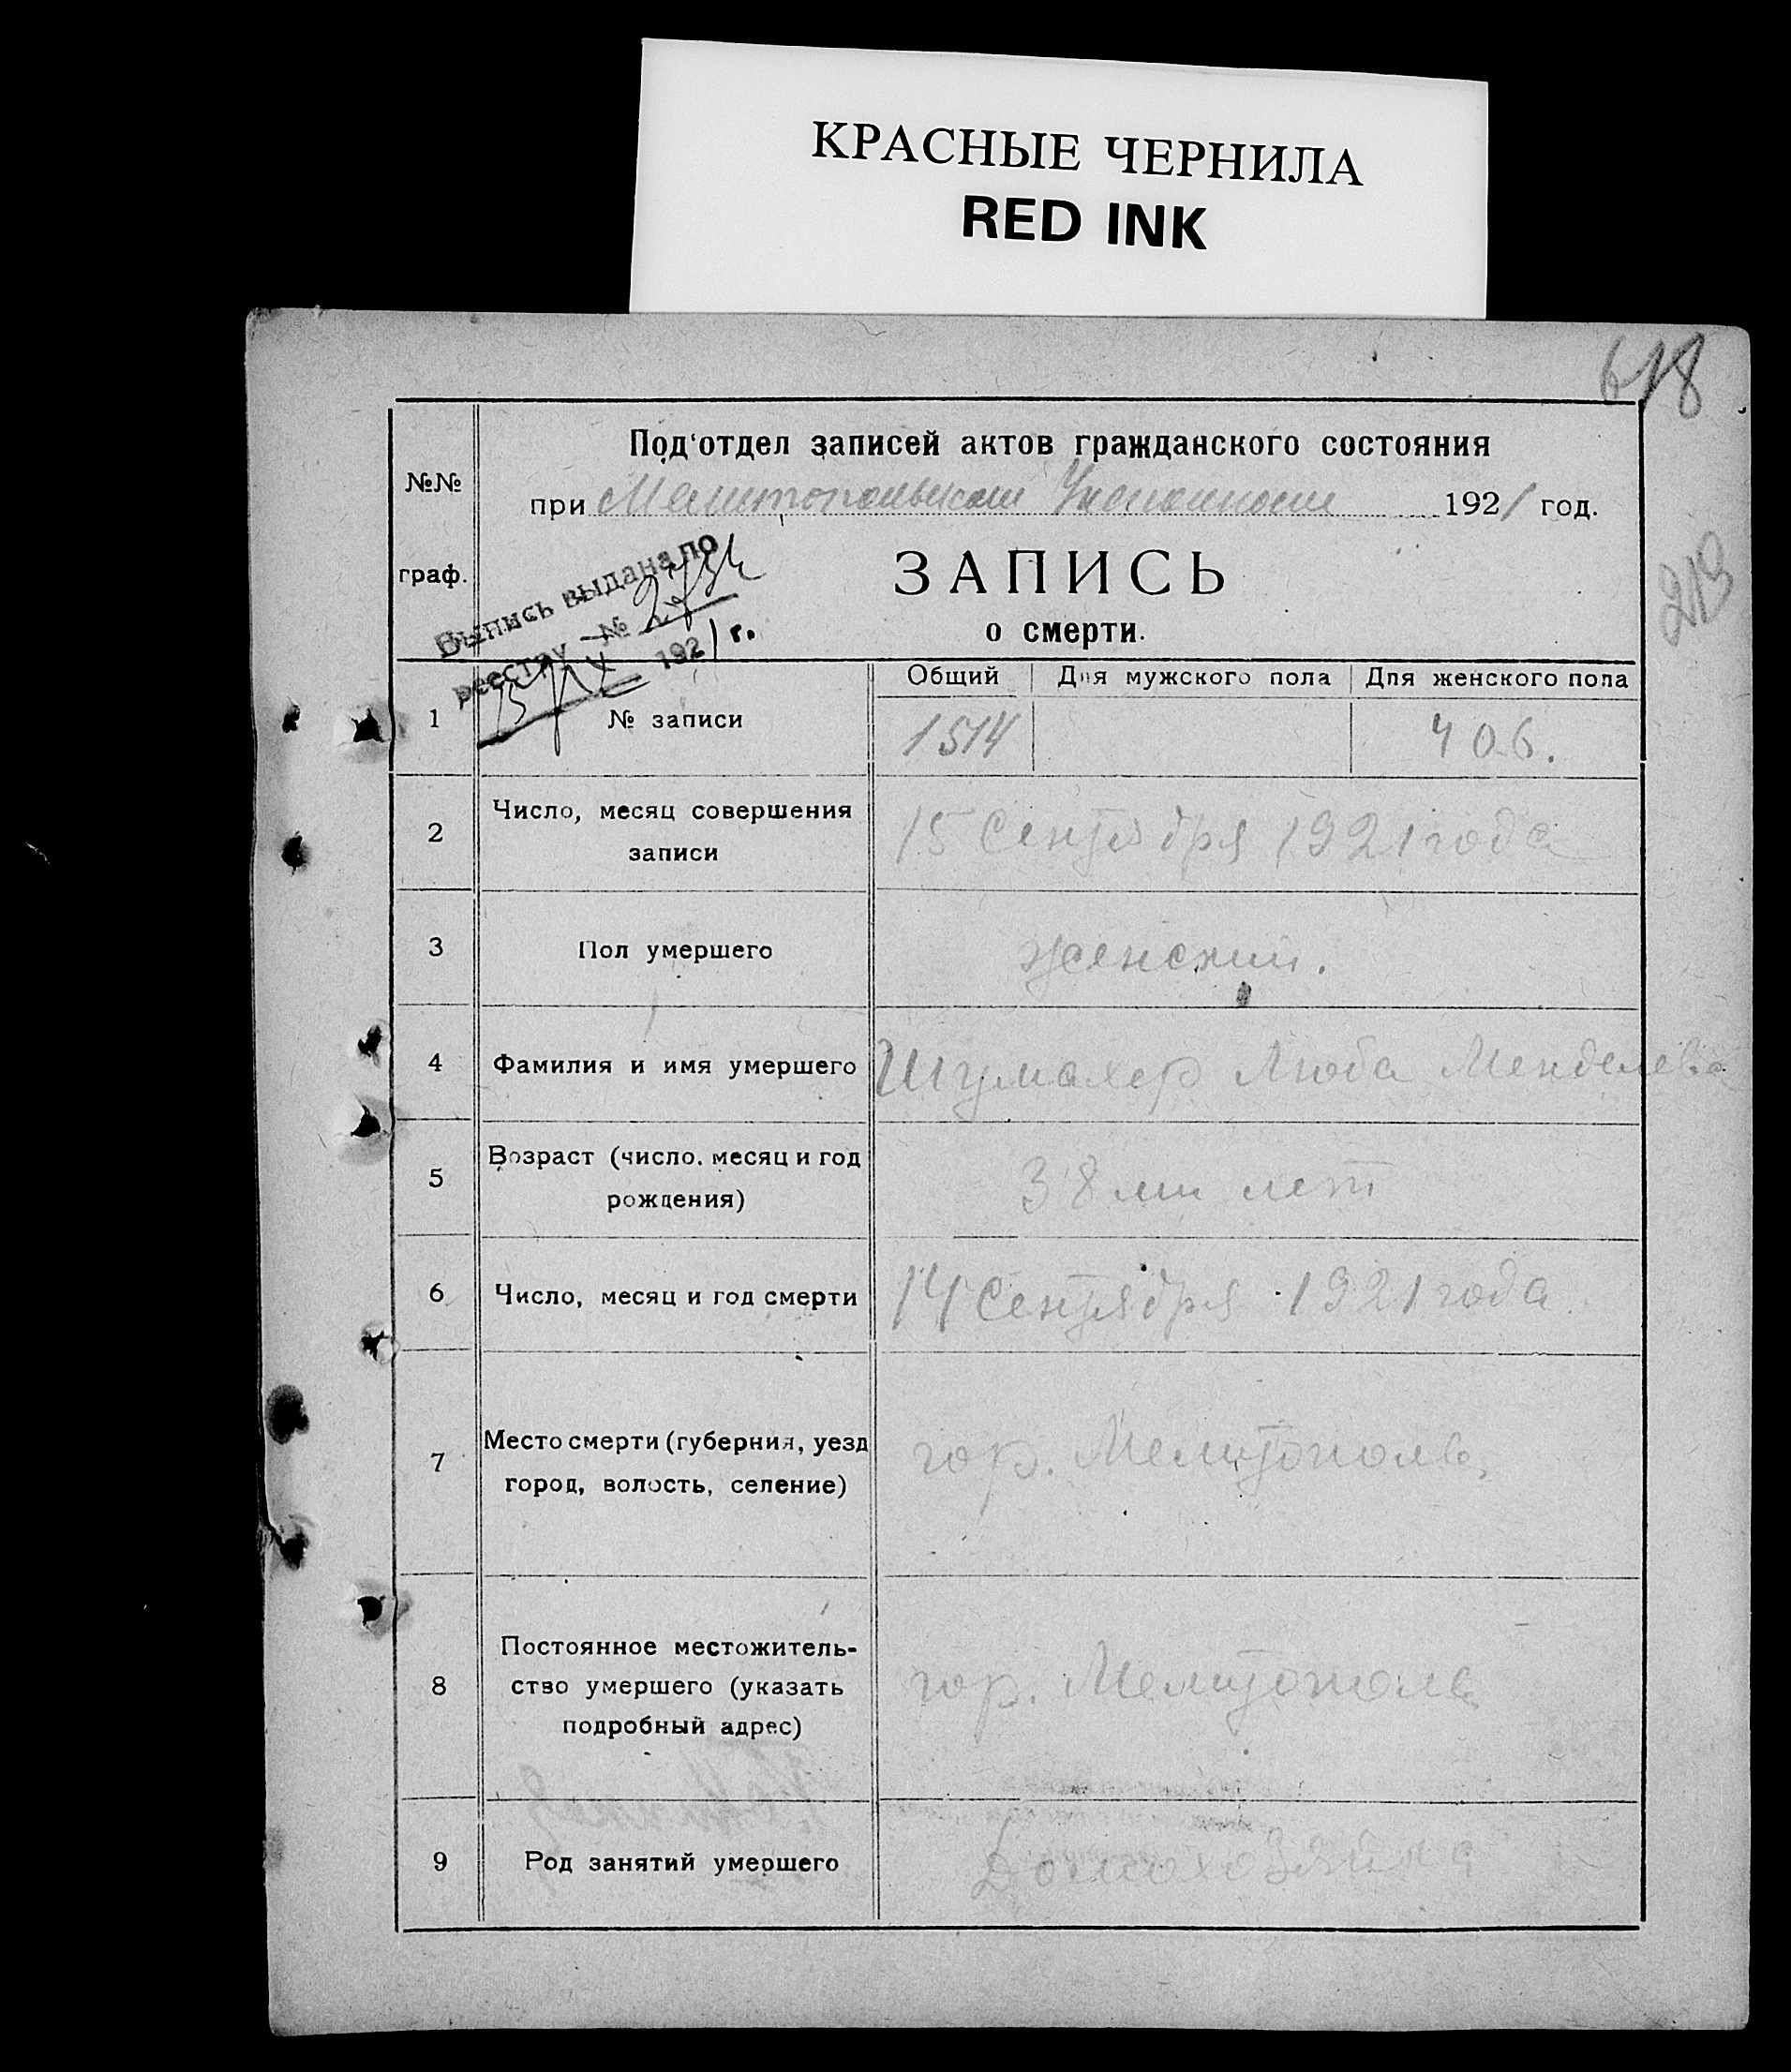 КРАСНЫЕ ЧЕРНИЛА
RED INK
618
Под‘отдел записей актов гражданского состояния
№№
при Мелитопольском 1921 год.
213
граф.
ЗАПИСЬ
о смерти.
Выпись выдана по
реестру №
1921 г.
Общий Для мужского пола Для женского пола
1 № записи 1514 406.
2 Число, месяц совершения
записи
15 Сентября 1921 года
3 Пол умершего женский.
4 Фамилия и имя умершего Шумахер Люба Менделева
5 Возраст (число, месяц и год
рождения)
38 ми лет
6 Число, месяц и год смерти 14 Сентября 1921 года
7 Место смерти (губерния, уезд
город, волость, селение)
гор. Мелитополь,
8 Постоянное местожитель-
ство умершего (указать
подробный адрес)
гор. Мелитополь
9 Род занятий умершего Домохозяйка